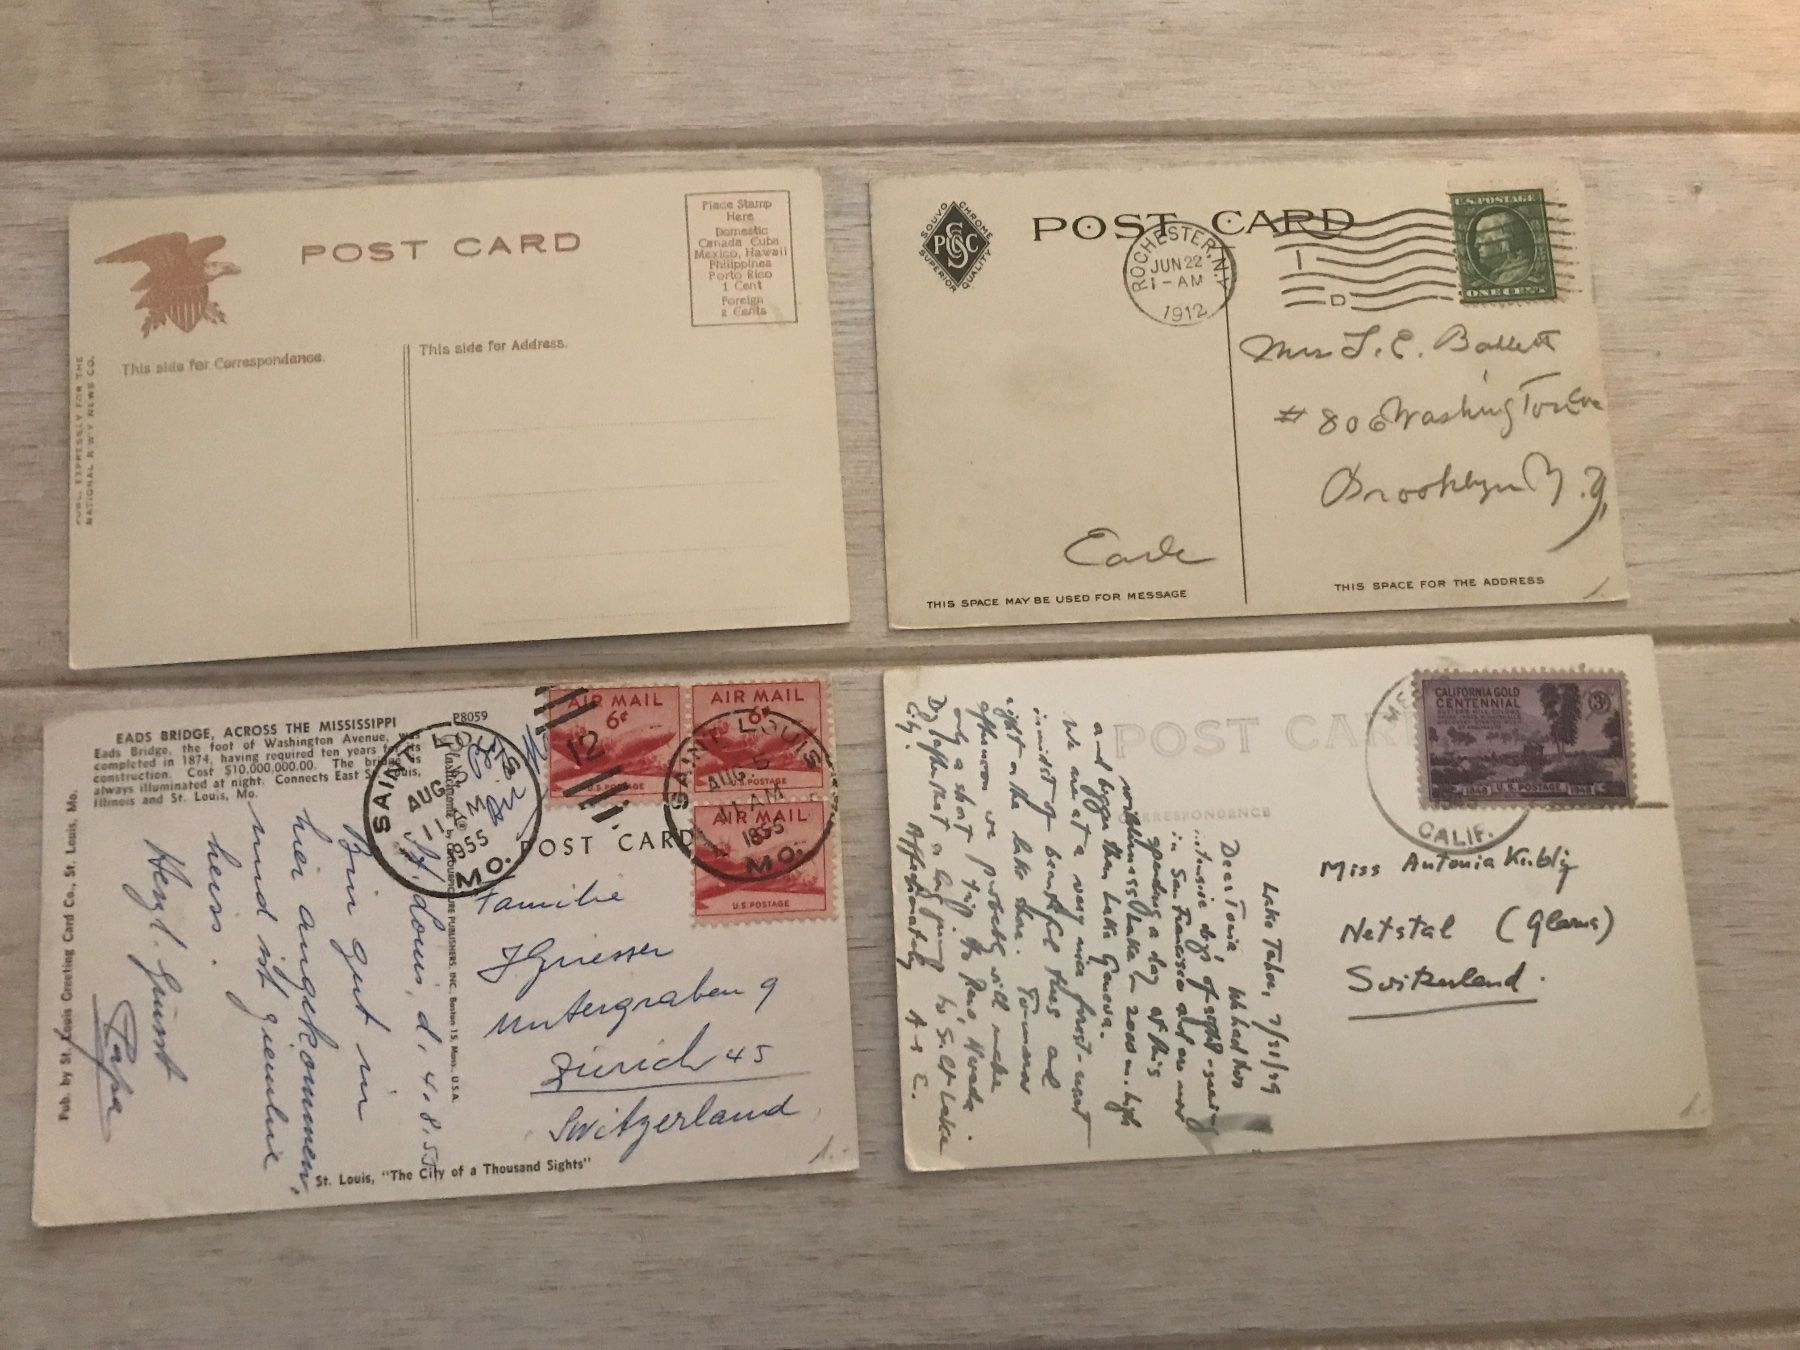 POST CARD
Place Stamp
Here
Domestic
Canada Cuba
Mexico, Hawaii
Philippines
Porto Rico
1 Cent
Foreign
2 Cents
This side for Correspondence.
This side for Address.
PUBL. EXPRESSLY FOR THE
NATIONAL R'W'Y NEWS CO.
SOUVO CHROME
SUPERIOR QUALITY
POST CARD
ROCHESTER, N.Y.
JUN 22
1-AM
1912
D
U.S. POSTAGE
ONE CENT
Mrs
# 806 Washington Ave
Brooklyn N.Y.
Earle
THIS SPACE MAY BE USED FOR MESSAGE
THIS SPACE FOR THE ADDRESS
EADS BRIDGE, ACROSS THE MISSISSIPPI
Eads Bridge, the foot of Washington Avenue, was
completed in 1874, having required ten years for its
construction. Cost $10,000,000.00. The bridge is
always illuminated at night. Connects East St. Louis,
Illinois and St. Louis, Mo.
P8059
AIR MAIL
6¢
U.S. POSTAGE
AIR MAIL
6¢
U.S. POSTAGE
AIR MAIL
U.S. POSTAGE
12
SAINT LOUIS
AUG
1955
MO.
SAINT LOUIS
AUG. 5
11 AM
1955
MO.
POST CARD
Pub. by St. Louis Greeting Card Co., St. Louis, Mo.
PUBLISHERS, INC., Boston 15, Mass., U.S.A.
St. Louis, d. 4.8.55
Bin gut in
hier angekommen,
und ist
heiss.
Herzl. Grüsst
Papa
Familie
Griesser
Untergraben 9
Zürich 45
Switzerland
St. Louis, "The City of a Thousand Sights"
POST CARD
CORRESPONDENCE
CALIFORNIA GOLD
CENTENNIAL
3¢
1948 U.S. POSTAGE 1948
CALIF.
Lake Tahoe, 7/31/49
Dear Tonia, We had two
days of sight-seeing
in San Francisco and are now
spending a day at this
lake 2000 m. high
and bigger than Lake Geneva.
We are at a very nice
in midst of beautiful trees and
right on the lake shore. Tomorrow
afternoon we probably will make
only a short trip to Reno, Nevada
Day after that a to Salt Lake
City. Affectionately
Miss Antonia
Netstal (Glarus)
Switzerland.